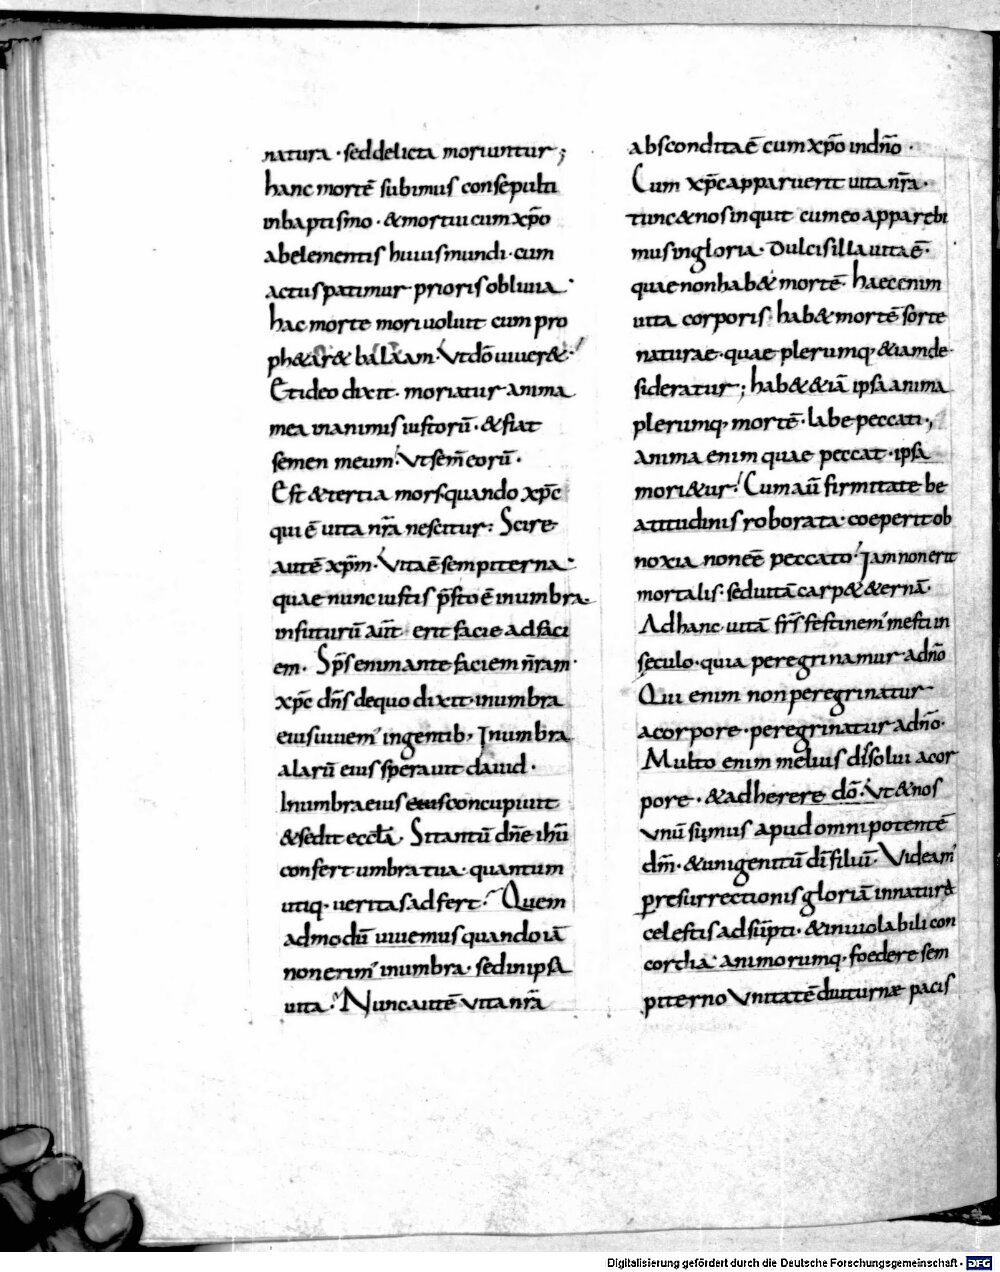 natura · sed delicta moriuntur ;
hanc mortē subimus consepulti
in baptismo · & mortui cum xp̄o
ab elementis huius mundi · cum
actus patimur prioris obliuia ·
hac morte mori uoluit cum pro
ph&ar& balaam · Vt dō uiuer& ·
Et ideo dixit · moriatur anima
mea in animis iustorū · & fiat
semen meum · Vt sem̄ eorū ·
Est & tertia mors · quando xp̄c
qui ē uita nr̄a nescitur : Scire
autē xp̄m · Vita ē sempiterna ·
quae nunc iustis p̄sto ē in umbra ·
in futurū aūt erit facie ad faci
em · Sp̄s enim ante faciem nr̄am ·
xp̄c dn̄s de quo dixit · in umbra
eius uiuem̄ in gentib; In umbra
alarū eius sperauit dauid ·
In umbra eius eius concupiuit
& sedit eccl̄a · Si tantū dn̄e ih̄u
confert umbra tua · quantum
utiq; ueritas adfert ? Quem
admodū uiuemus quando iā
non erim̄ in umbra · sed in ipsa
uita ? Nunc autē uita nr̄a
abscondita ē cum xp̄o in dn̄o ·
Cum xp̄c apparuerit uita nr̄a ·
tunc & nos inquit cum eo apparebi
mus in gloria · Dulcis illa uita ē ·
quae non hab& mortē · haec enim
uita corporis · hab& mortē sorte
naturae · quae plerumq; & iam de
sideratur ; hab& & iā ipsa anima
plerumq; mortē · labe peccati ·,
Anima enim quae peccat · ipsa
mori&ur · Cum aū firmitate be
atitudinis roborata coeperit ob
noxia non eē peccato · Iam non erit
mortalis · sed uitā carp& &ernā ·
Ad hanc uitā frs̄ festinem̄ mesti in
seculo · quia peregrinamur a dn̄o
Qui enim non peregrinatur
a corpore · peregrinatur a dn̄o ·
Multo enim melius disolui a cor
pore · & adherere dō · Vt & nos
vnū simus apud omnipotentē
dm̄ · & unigenitū dī filiū · Videam̄
p̱ resurrectionis gloriā in naturā
celestis adsūpti · & inuiolabili con
cordia animorumq; foedere sem
piterno Vnitatē diuturnæ pacis